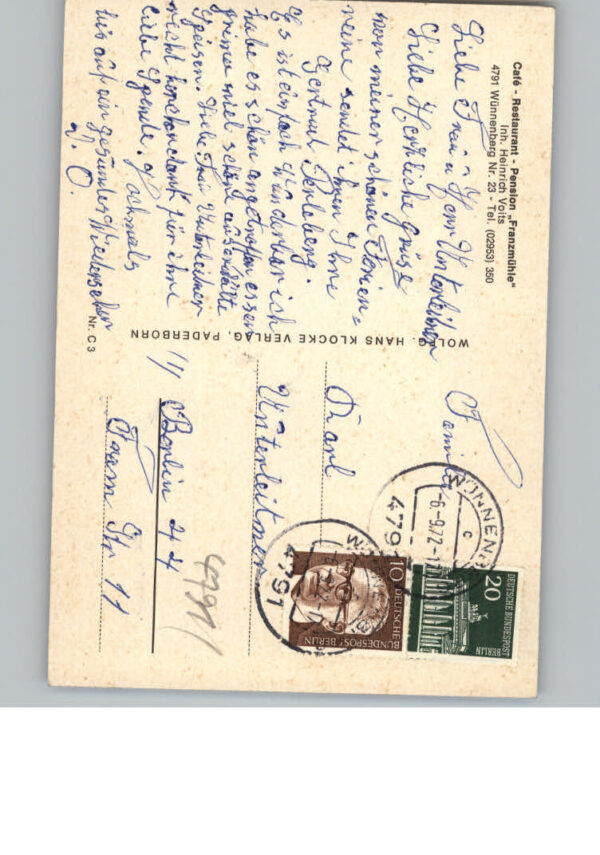 Café - Restaurant - Pension „Franzmühle"
Inh. Heinrich Volts
4791 Wünnenberg Nr. 23 - Tel. (02953) 350
Liebe Frau u Herr Unterleitner
Liebe Herzliche Grüße
von meiner schönen Ferien=
reine sendet ihnen Ihre
Gertrud
Es ist einfach wunderbar ich
habe es schön angetroffen essen
prima und schöne
Liebe Frau Unterleitner
recht herzlich dank für ihre
liebe Spende. Nochmals
bis auf ein gesundes Wiedersehen
D. O.
Nr. C 3
WOLFG. HANS KLOCKE VERLAG, PADERBORN
Familie
Karl
Unterleitner
1/ Berlin 44
Str 11
4791
WÜNNENBERG
-6.-9.72-
c
4791
4791
10
DEUTSCHE
BUNDESPOST BERLIN
20
DEUTSCHE BUNDESPOST
BERLIN